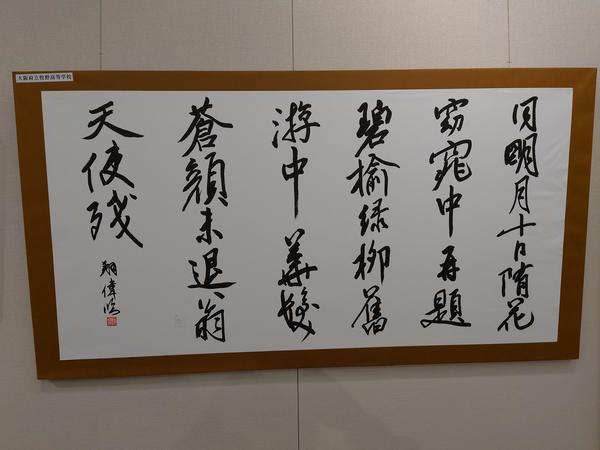 大阪府立牧野高等学校
同明月十日隋花
窈窕中再題
碧榆緑柳舊
游中華髮
蒼顔未退翁
天使残
翔偉臨